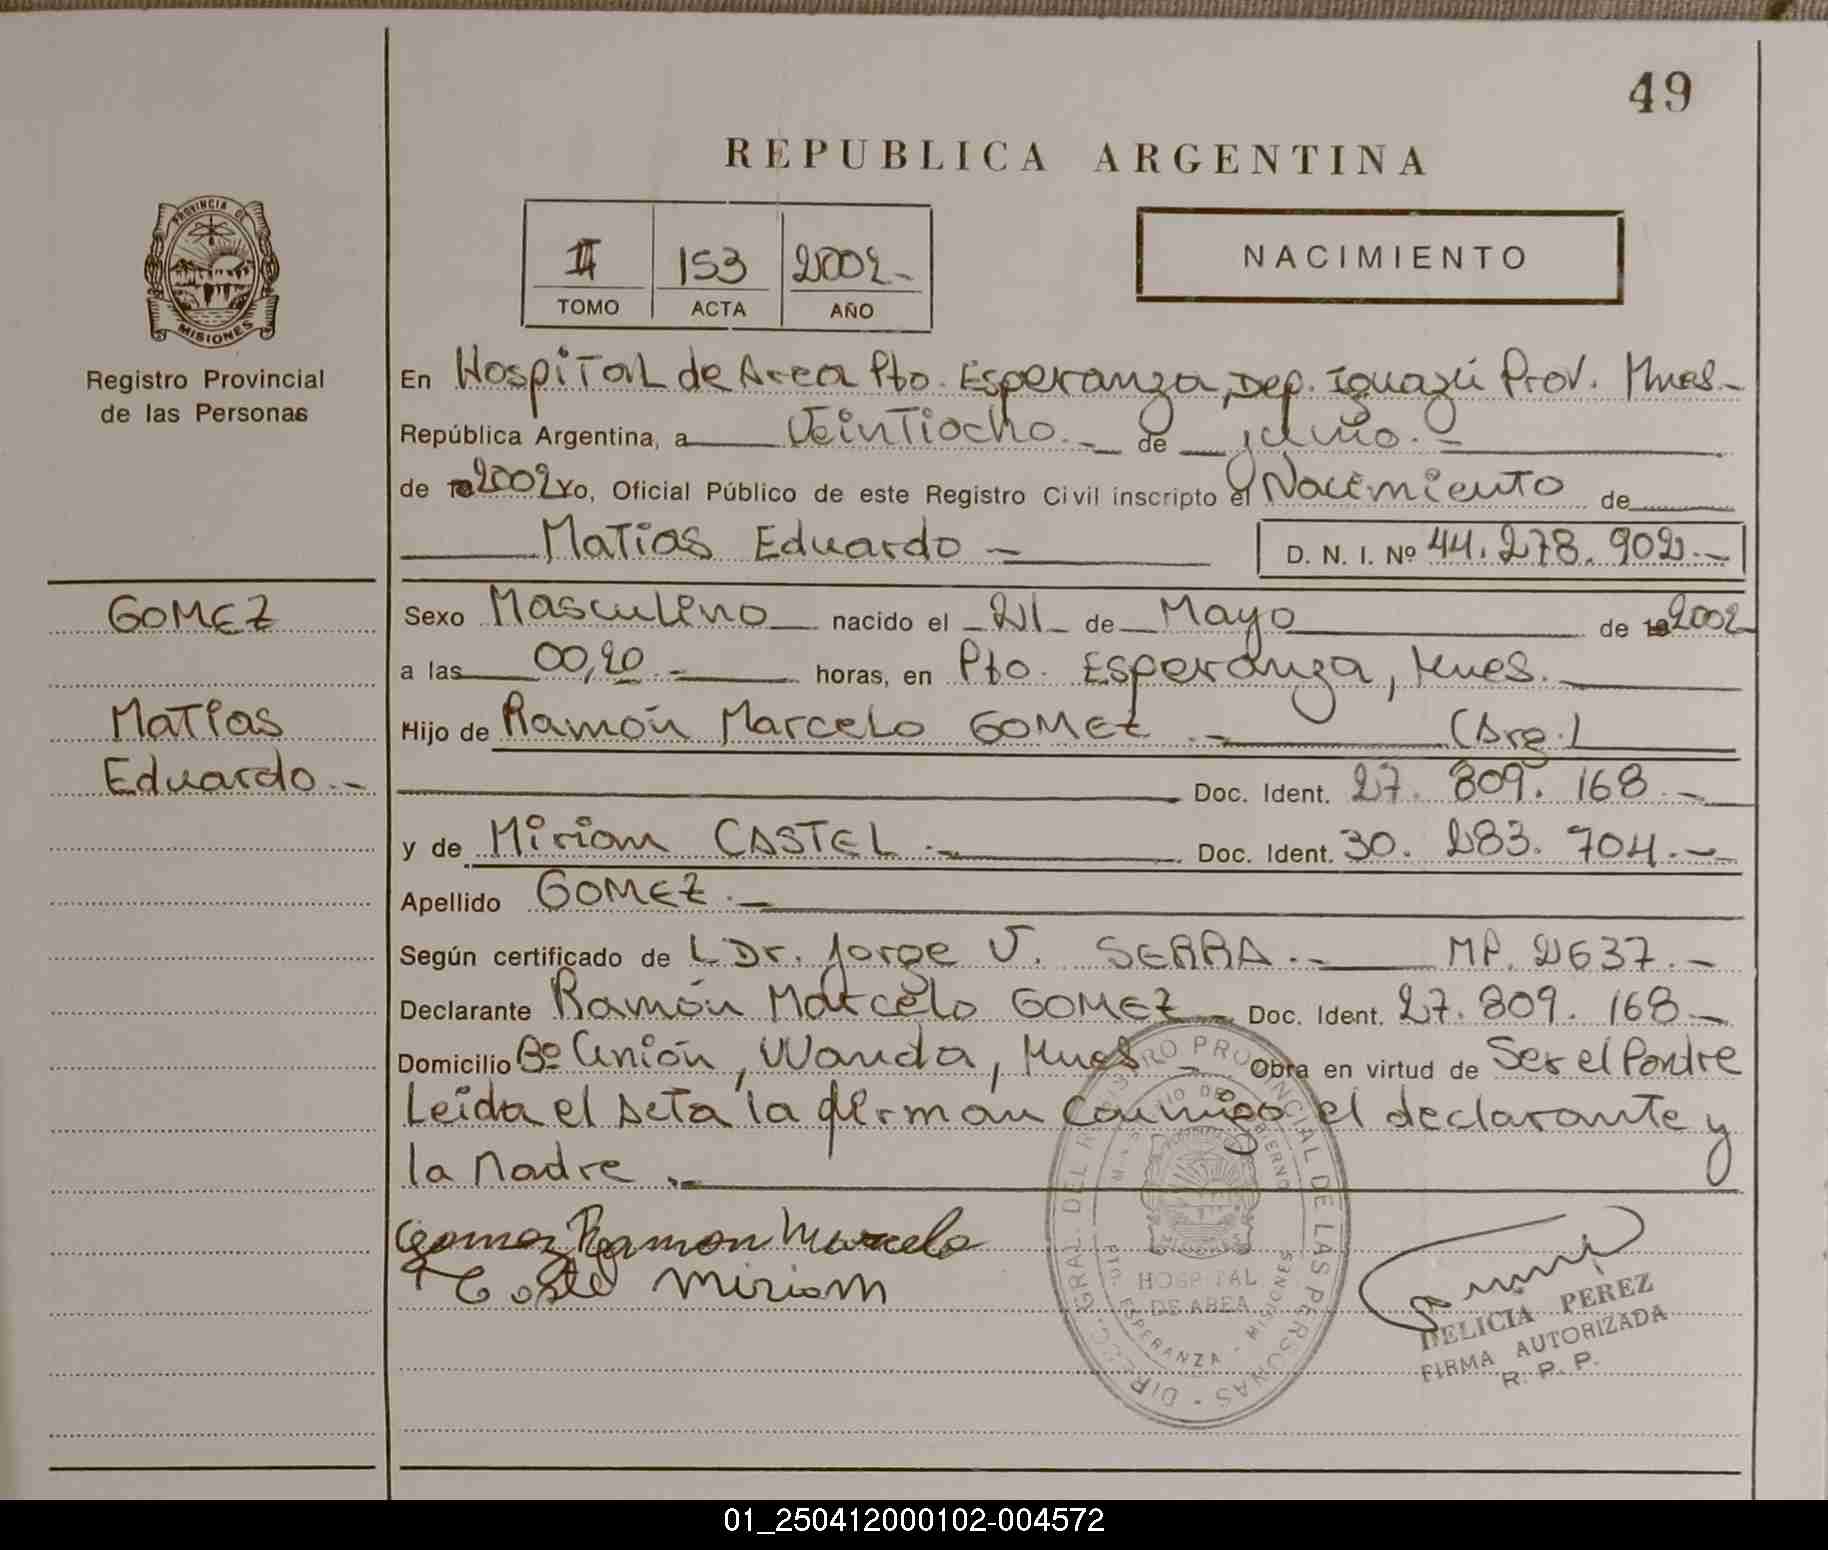 49
REPUBLICA ARGENTINA
II 153 2002-
TOMO ACTA AÑO
NACIMIENTO
PROVINCIA DE
MISIONES
Registro Provincial
de las Personas
En Hospital de Area Pto. Esperanza, Dep. Iguazú Prov. Mnes-
República Argentina, a Veintiocho.- de junio.-
de 19 2002 Yo, Oficial Público de este Registro Civil inscripto el Nacimiento de
Matias Eduardo - D. N. I. Nº 44.278.902.-
GOMEZ
Matias
Eduardo.-
Sexo Masculino nacido el 21 de Mayo de 19 2002
a las 00,20.- horas, en Pto. Esperanza, Mnes.
Hijo de Ramón Marcelo GOMEZ.- (Arg.)
Doc. Ident. 27.809.168.-
y de Miriam CASTEL.- Doc. Ident. 30.283.704.-
Apellido GOMEZ.-
Según certificado de L Dr. Jorge V. SERRA.- MP. 2637.-
Declarante Ramón Marcelo GOMEZ- Doc. Ident. 27.809.168-
Domicilio Bº Unión, Wanda, Mnes- Obra en virtud de Ser el Padre
Leida el Acta la firman conmigo el declarante y
la Madre.-
Gomez Ramon Marcelo
Miriam
DIRECC. GRAL. DEL REGISTRO PROVINCIAL DE LAS PERSONAS
MINISTERIO DE GOBIERNO
HOSPITAL
DE AREA
PTO. ESPERANZA - MISIONES
DELICIA PEREZ
FIRMA AUTORIZADA
R. P. P.
01_250412000102-004572